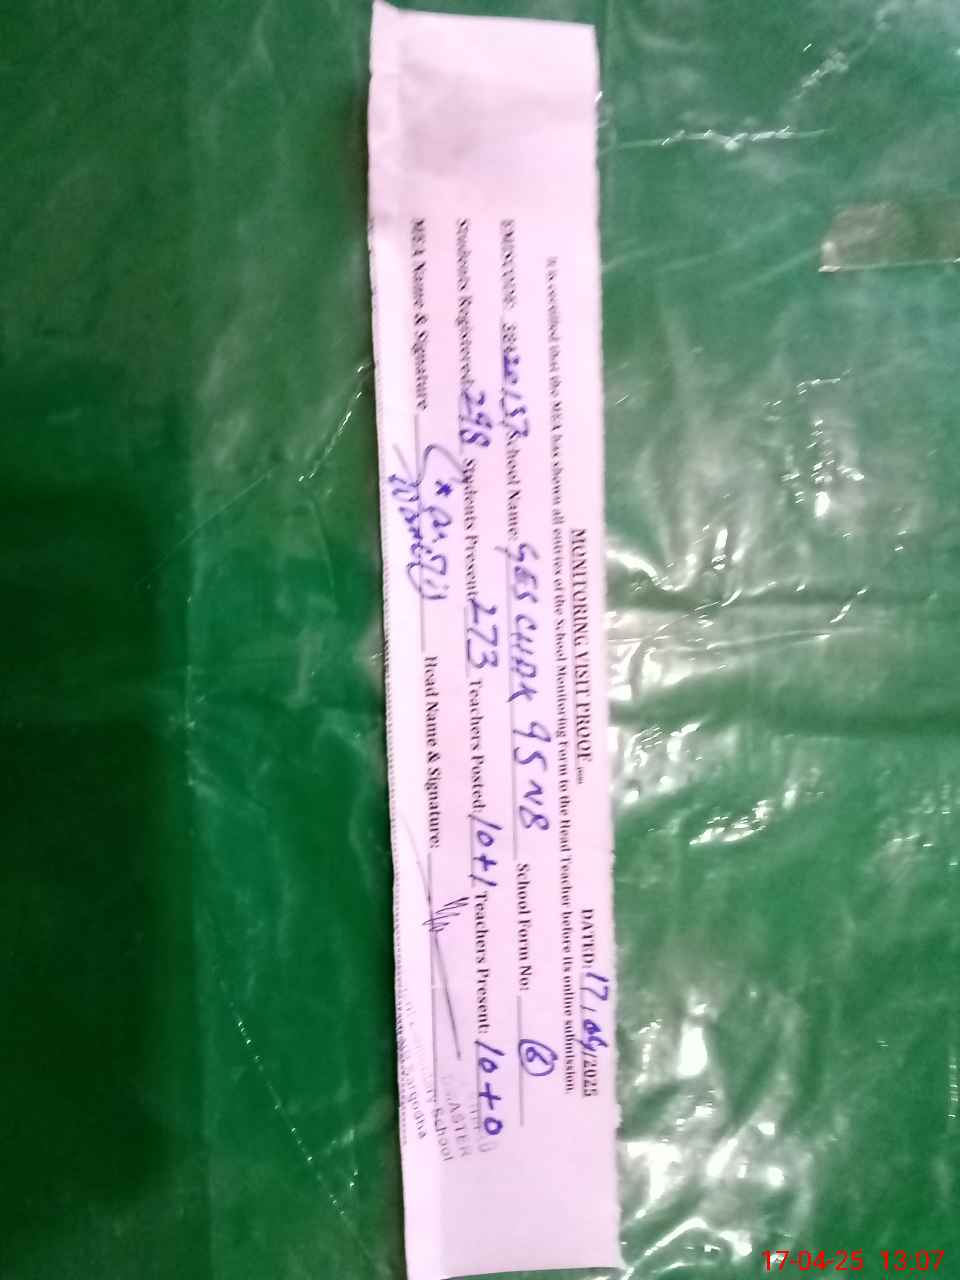 MONITORING VISIT PROOF DATED: 17/04/2025
It is certified that the MEA has shown all entries of the School Monitoring Form to the Head Teacher before its online submission.
EMISCODE: 38420157 School Name: GES CHAK 95 NB School Form No: 6
Students Registered: 298 Students Present: 273 Teachers Posted: 10+1 Teachers Present: 10+0
MEA Name & Signature Head Name & Signature:
MASTER
School
Sargodha
17-04-25 13:07